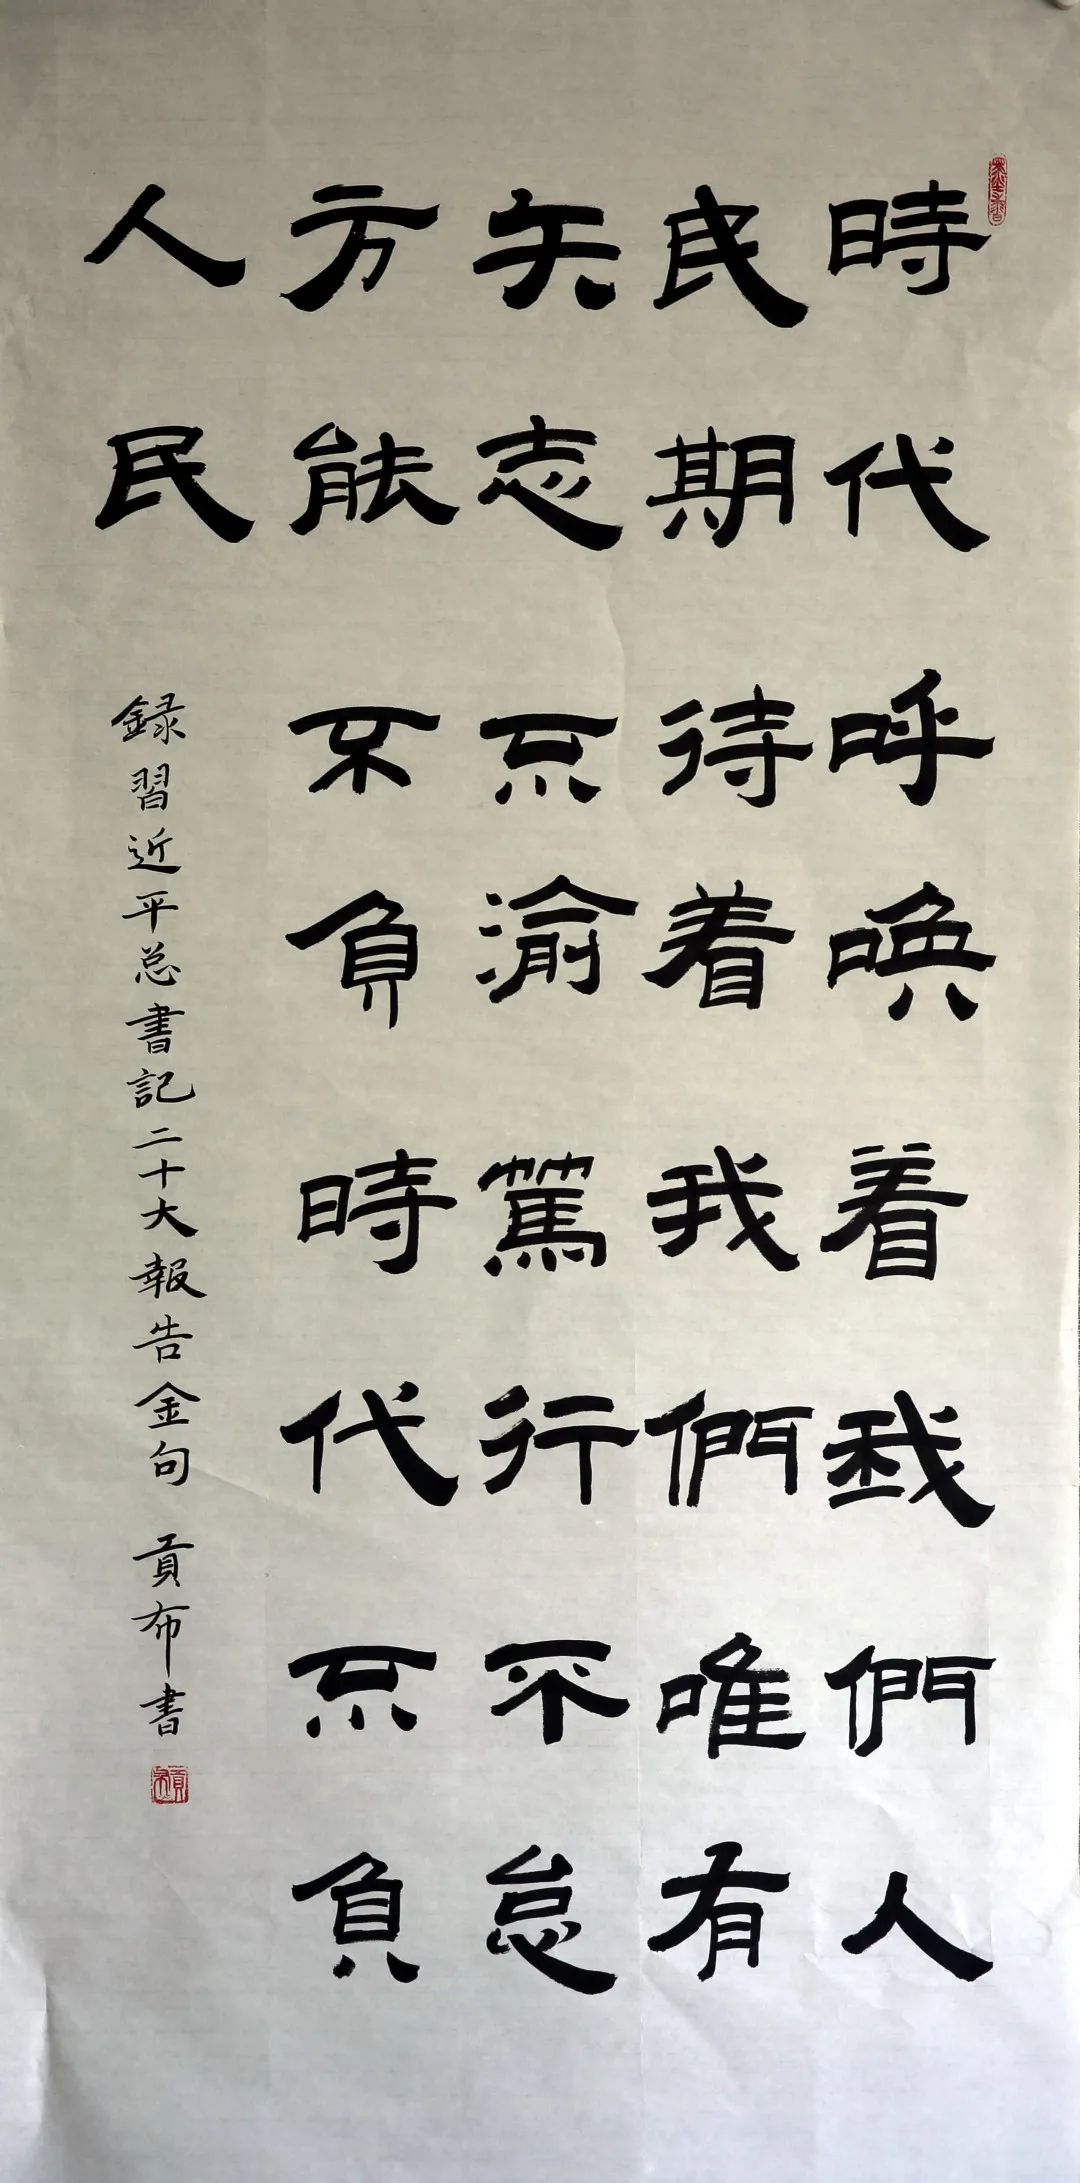 時代呼唤着我們人
民期待着我們唯有
矢志不渝篤行不怠
方能不負時代不負
人民
録習近平总書記二十大報告金句 貢布書